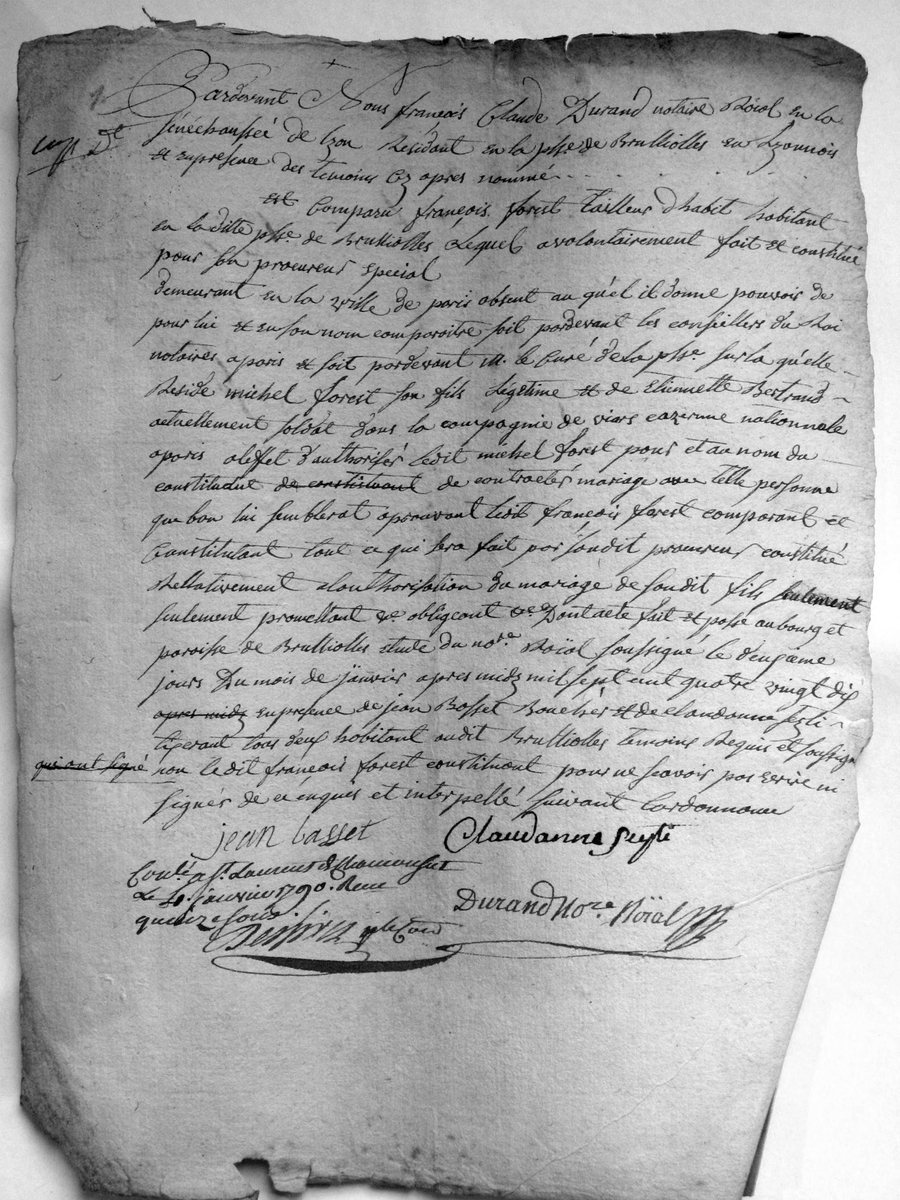 Pardevant Nous françois Claude Durand notaire Roïal en la
sénéchaussée de Lyon Résidant en la psse de Brulliolles en Lyonnois
et en presence des temoins cy apres nommé
est Comparu françois forest tailleur d'habit habitant
en la ditte psse de Brulliolles Lequel a volontairement fait et constitué
pour son procureur special
demeurant en la ville de paris absent au quel il donne pouvoir de
pour lui et en son nom comparoitre soit pardevant les conseillers du Roi
notaires a paris et soit pardevant M. le Curé de la psse sur la quelle
Reside michel forest son fils Legitime et de Etiennette Bertrand
actuellement soldat dans la compagnie de cazerne nationnale
a paris a leffet d'authorisér ledit michel forest pour et au nom du
constitudut de constituant de contractér mariage avec telle personne
que bon lui semblerat aprouvant ledit françois forest comparant et
Constituant tout ce qui sera fait par sondit procureur constitué
Rellativement a lauthorisation du mariage de son dit fils seulement
seulement promettant &c obligeant &c Dont acte fait et passé au bourg et
paroisse de Brulliolles etude du nore Roïal soussigné le deuxiême
jours Du mois de janvier apres midy mil sept cent quatre vingt dix
apres midy en presence de jean Basset Bouchér et de claudanne
tous deux habitant audit Brulliolles temoins Requis et soussignés
qui ont signé non le dit françois forest constituant pour ne scavoir pas ecrire ni
signér de ce enquis et interpellé suivant lordonnance
jean basset Claudanne
Conlé a St Laurent de Chamousset
Le janvier 1790. Reçu
quinze sous.
Durand Nore Roïal